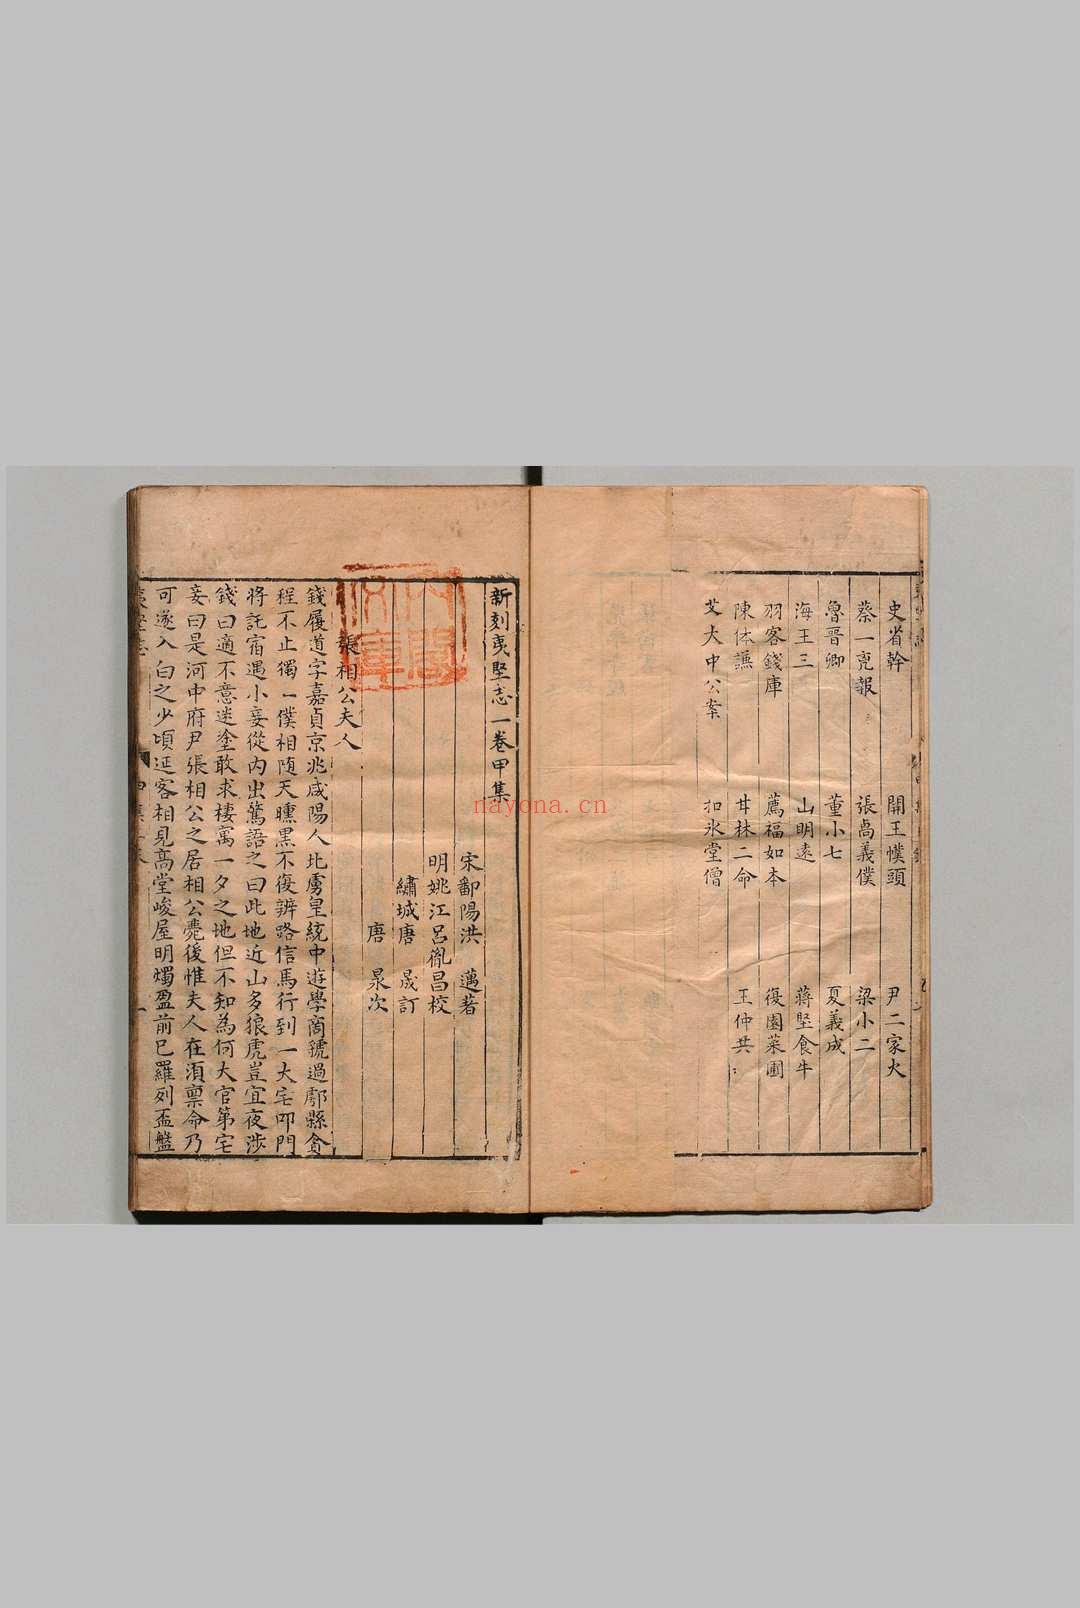 史省幹　開王幞頭　尹二家火
蔡一寃報　張尚義僕　梁小二
魯晋卿　董小七　夏義成
海王三　山明遠　蔣堅食牛
羽客錢庫　薦福如本　復園菜圃
陳体謙　甘林二命　王仲共
艾大中公案　扣氷堂僧
新刻夷堅志一卷甲集
宋鄱陽洪　邁著
明姚江呂胤昌校
繡城唐　晟訂
唐　泉次
張相公夫人
錢履道字嘉貞京兆咸陽人北虜皇統中遊學商虢過鄠縣貪
程不止獨一僕相随天曛黒不復辨路信馬行到一大宅叩門
將託宿遇小妾從内出驚語之曰此地近山多狼虎豈宜夜涉
錢曰適不意迷塗敢求棲寓一夕之地但不知為何大官第宅
妾曰是河中府尹張相公之居相公薨後惟夫人在湏禀命乃
可遂入白之少頃延客相見髙堂峻屋明燭盈前巳羅列盃盤
nayona.cn